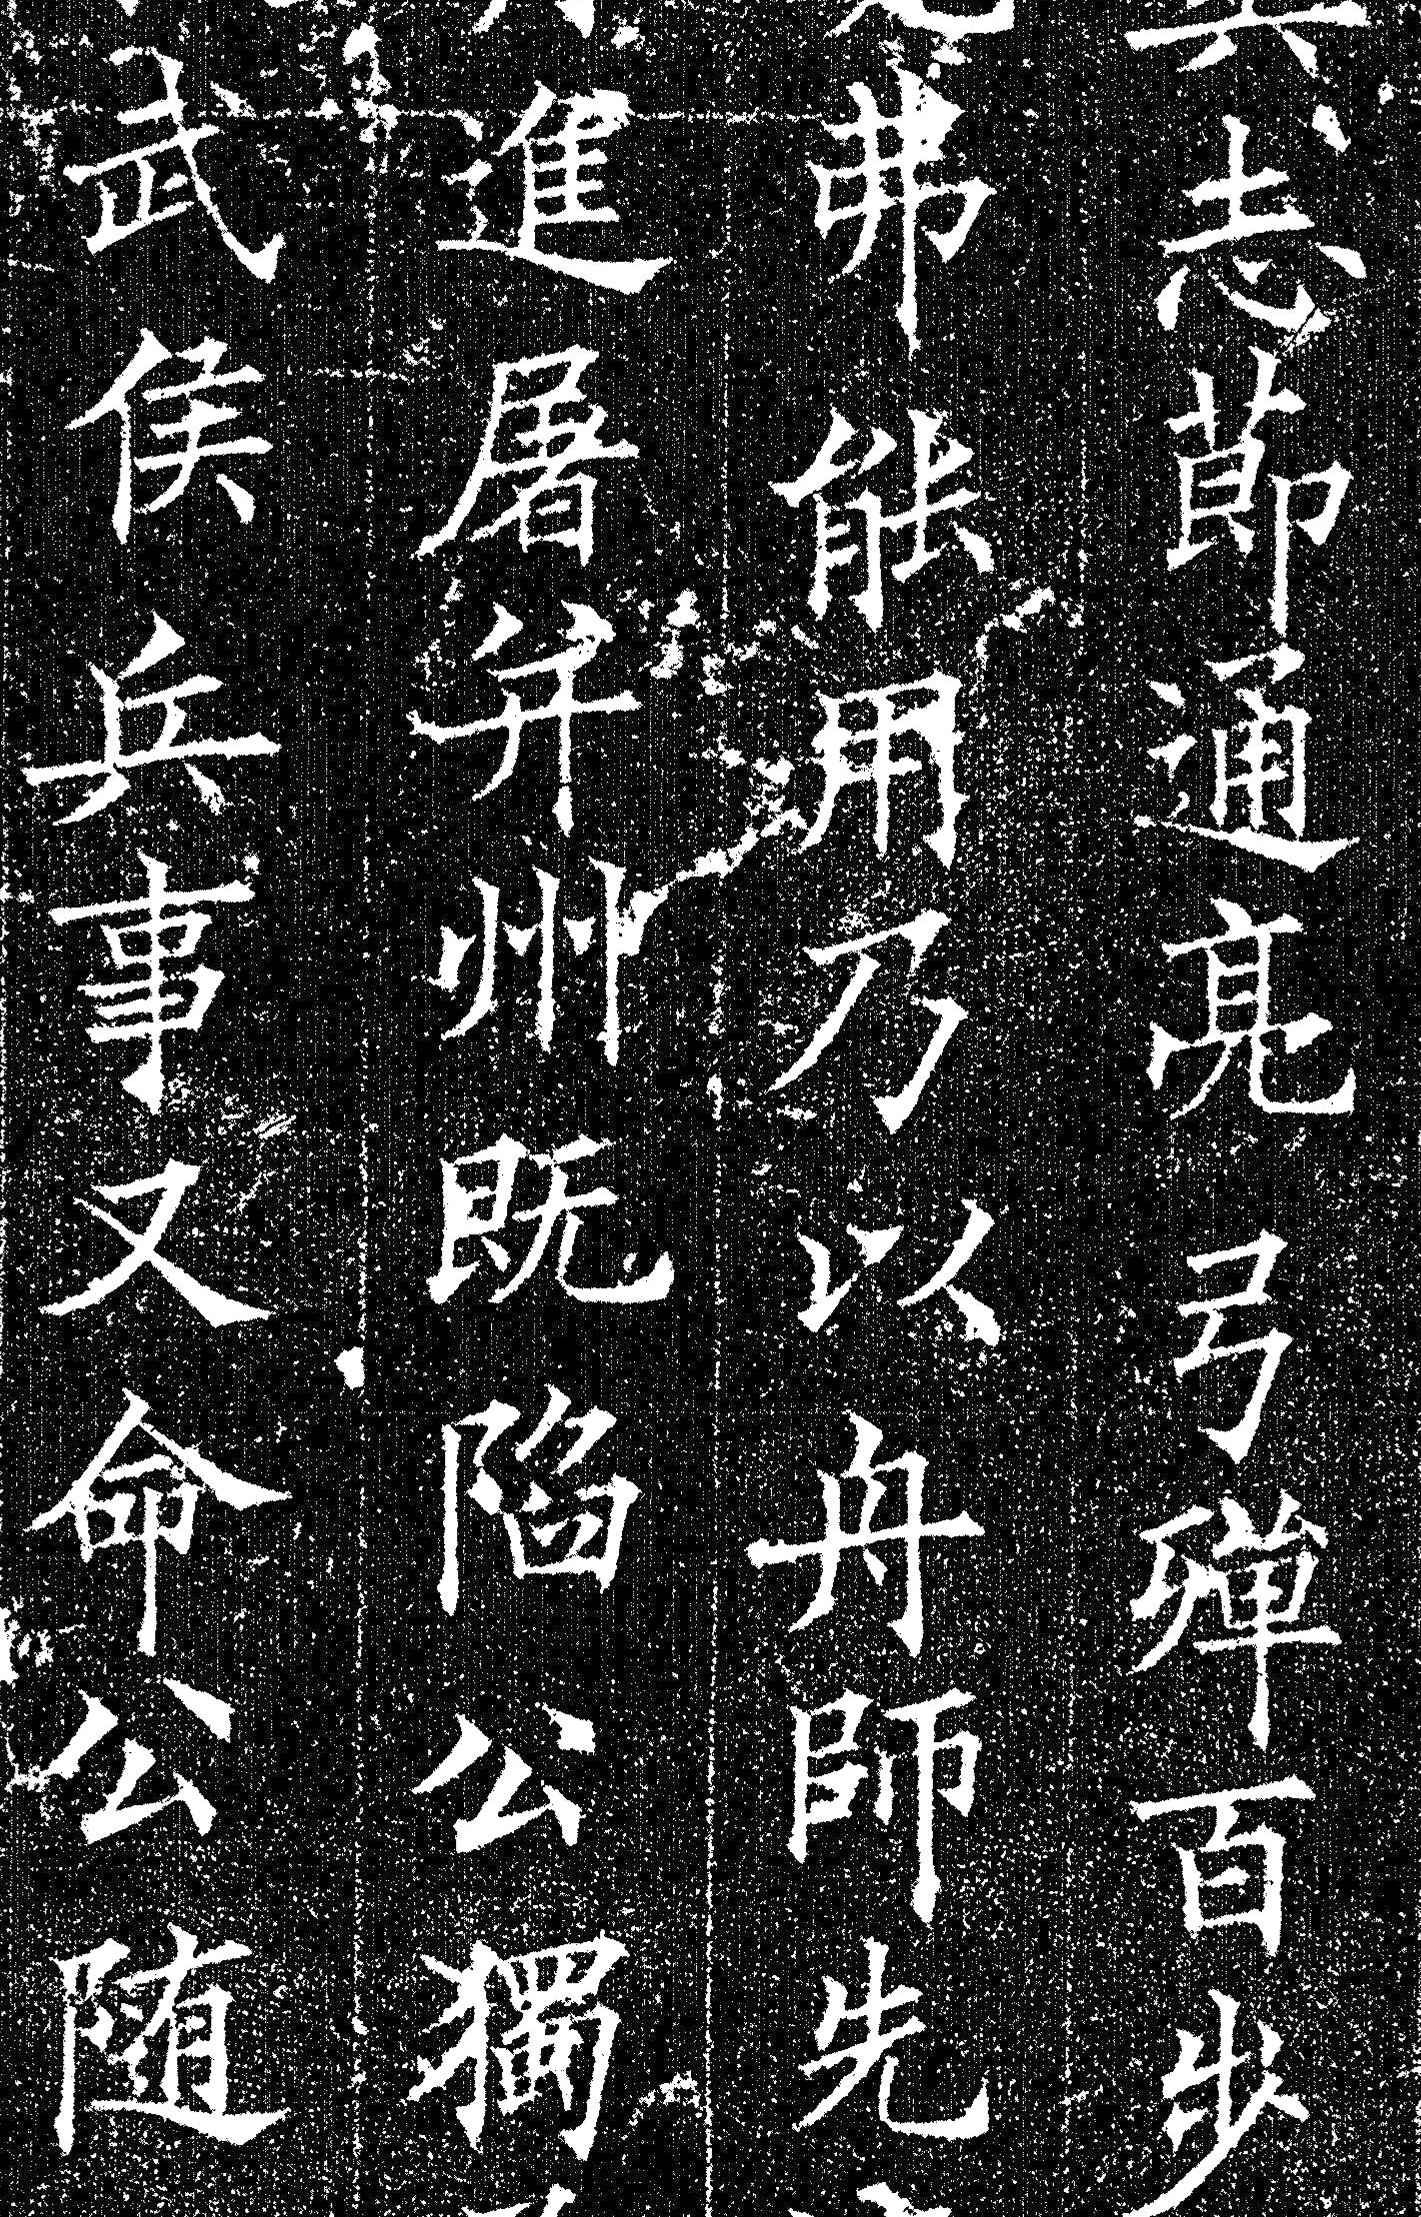 志節通亮弓彈百步
弗能用乃以舟師先
進屠并州既陷公獨
武侯兵事又命公随